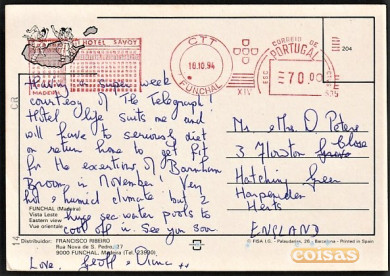 HOTEL SAVOY
MADEIRA
CTT
18.10.94
FUNCHAL
CORREIO DE
PORTUGAL
70,00
XIV
204
Having a super week
courtesy of The Telegraph!
Hotel life suits me and I
will have to seriously diet
on return home to get fit
for the exertions of Barnham
Broom in November. Very
hot & humid climate but 2
huge sea water pools to
cool off in. See you soon.
Love, Geoff &
Mr & Mrs D. Peters
3 Close
Hatching Green
Harpenden
Herts
ENGLAND
FUNCHAL (Madeira)
Vista Leste
Eastern view
Vue orientale
Distribuidor: FRANCISCO RIBEIRO
Rua Nova de S. Pedro, 27
9000 FUNCHAL, Madeira (Tel. 23930)
FISA I.G. - Palaudarias, 26 - Barcelona - Printed in Spain
coisas